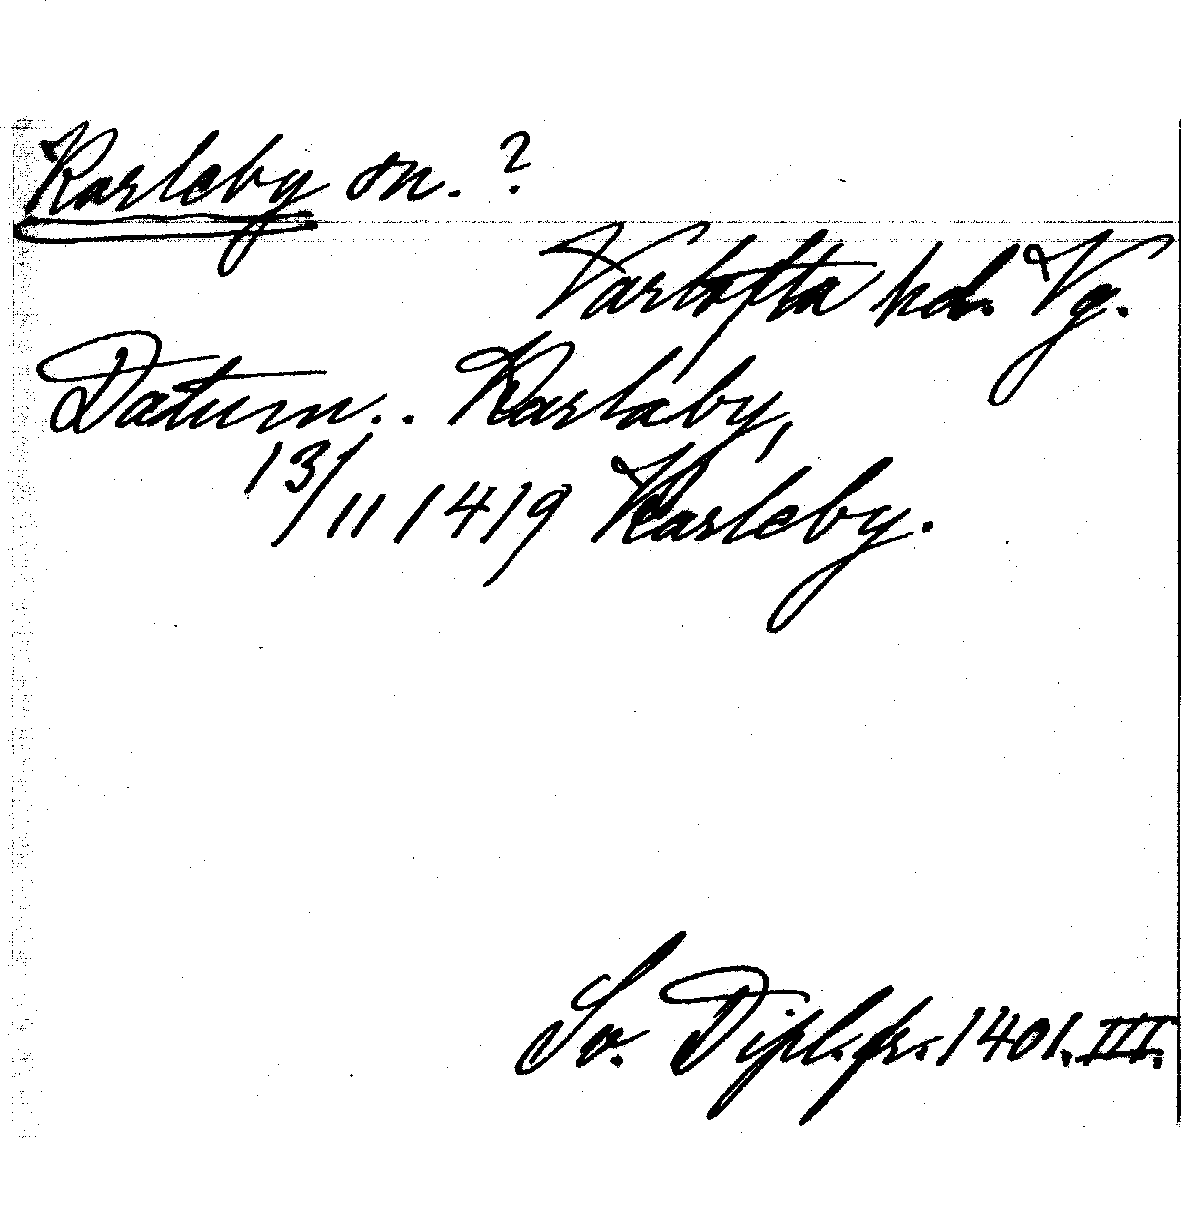 Karleby sn. ?
Vartofta hd. Vg.
Datum.. Karlaby,
13/11 1419 Karleby.
Sv. Dipl. fr. 1401. III.